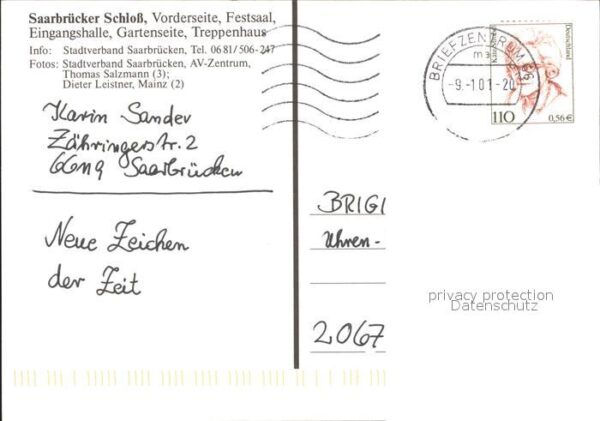 Saarbrücker Schloß, Vorderseite, Festsaal,
Eingangshalle, Gartenseite, Treppenhaus
Info: Stadtverband Saarbrücken, Tel. 06 81 / 506-247
Fotos: Stadtverband Saarbrücken, AV-Zentrum,
Thomas Salzmann (3);
Dieter Leistner, Mainz (2)
Karin Sander
Zähringerstr. 2
66119 Saarbrücken
Neue Zeichen
der Zeit
BRIEFZENTRUM 66
-9.-1.01.-20
Deutschland
110
0,56 €
BRIGI
Uhren-
2067
privacy protection
Datenschutz